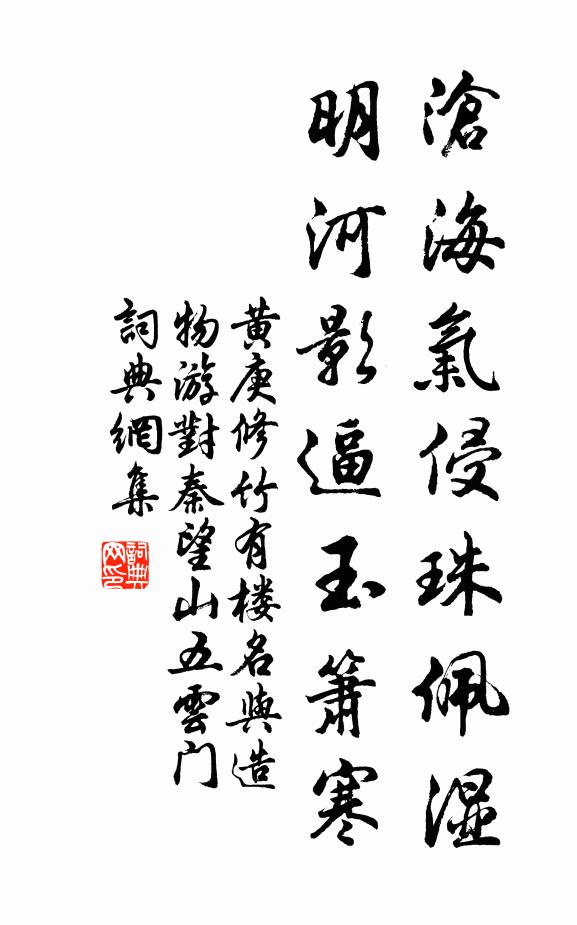 滄海氣侵珠佩濕
明河影逼玉簫寒
黄庚修竹有楼名與造
物游對秦望山五雲门
詞典網集
詞典网印